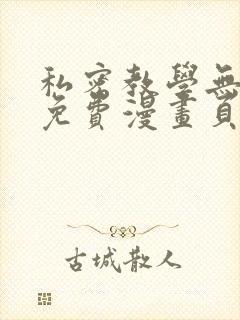 私密教學無
免費漫畫頁
古城散人